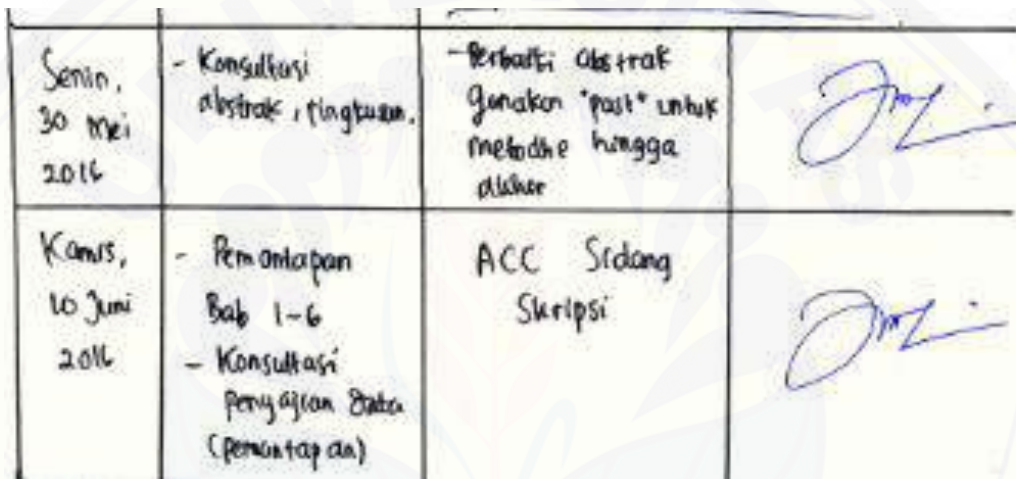 Senin,
30 Mei
2016
- Konsultasi
abstrak, ringkasan.
- Perbaiki abstrak
gunakan "past" untuk
metodhe hingga
akhir
Kamis,
10 Juni
2016
- Pemantapan
Bab 1-6
- Konsultasi
penyajian Data
(pemantapan)
ACC Sidang
Skripsi